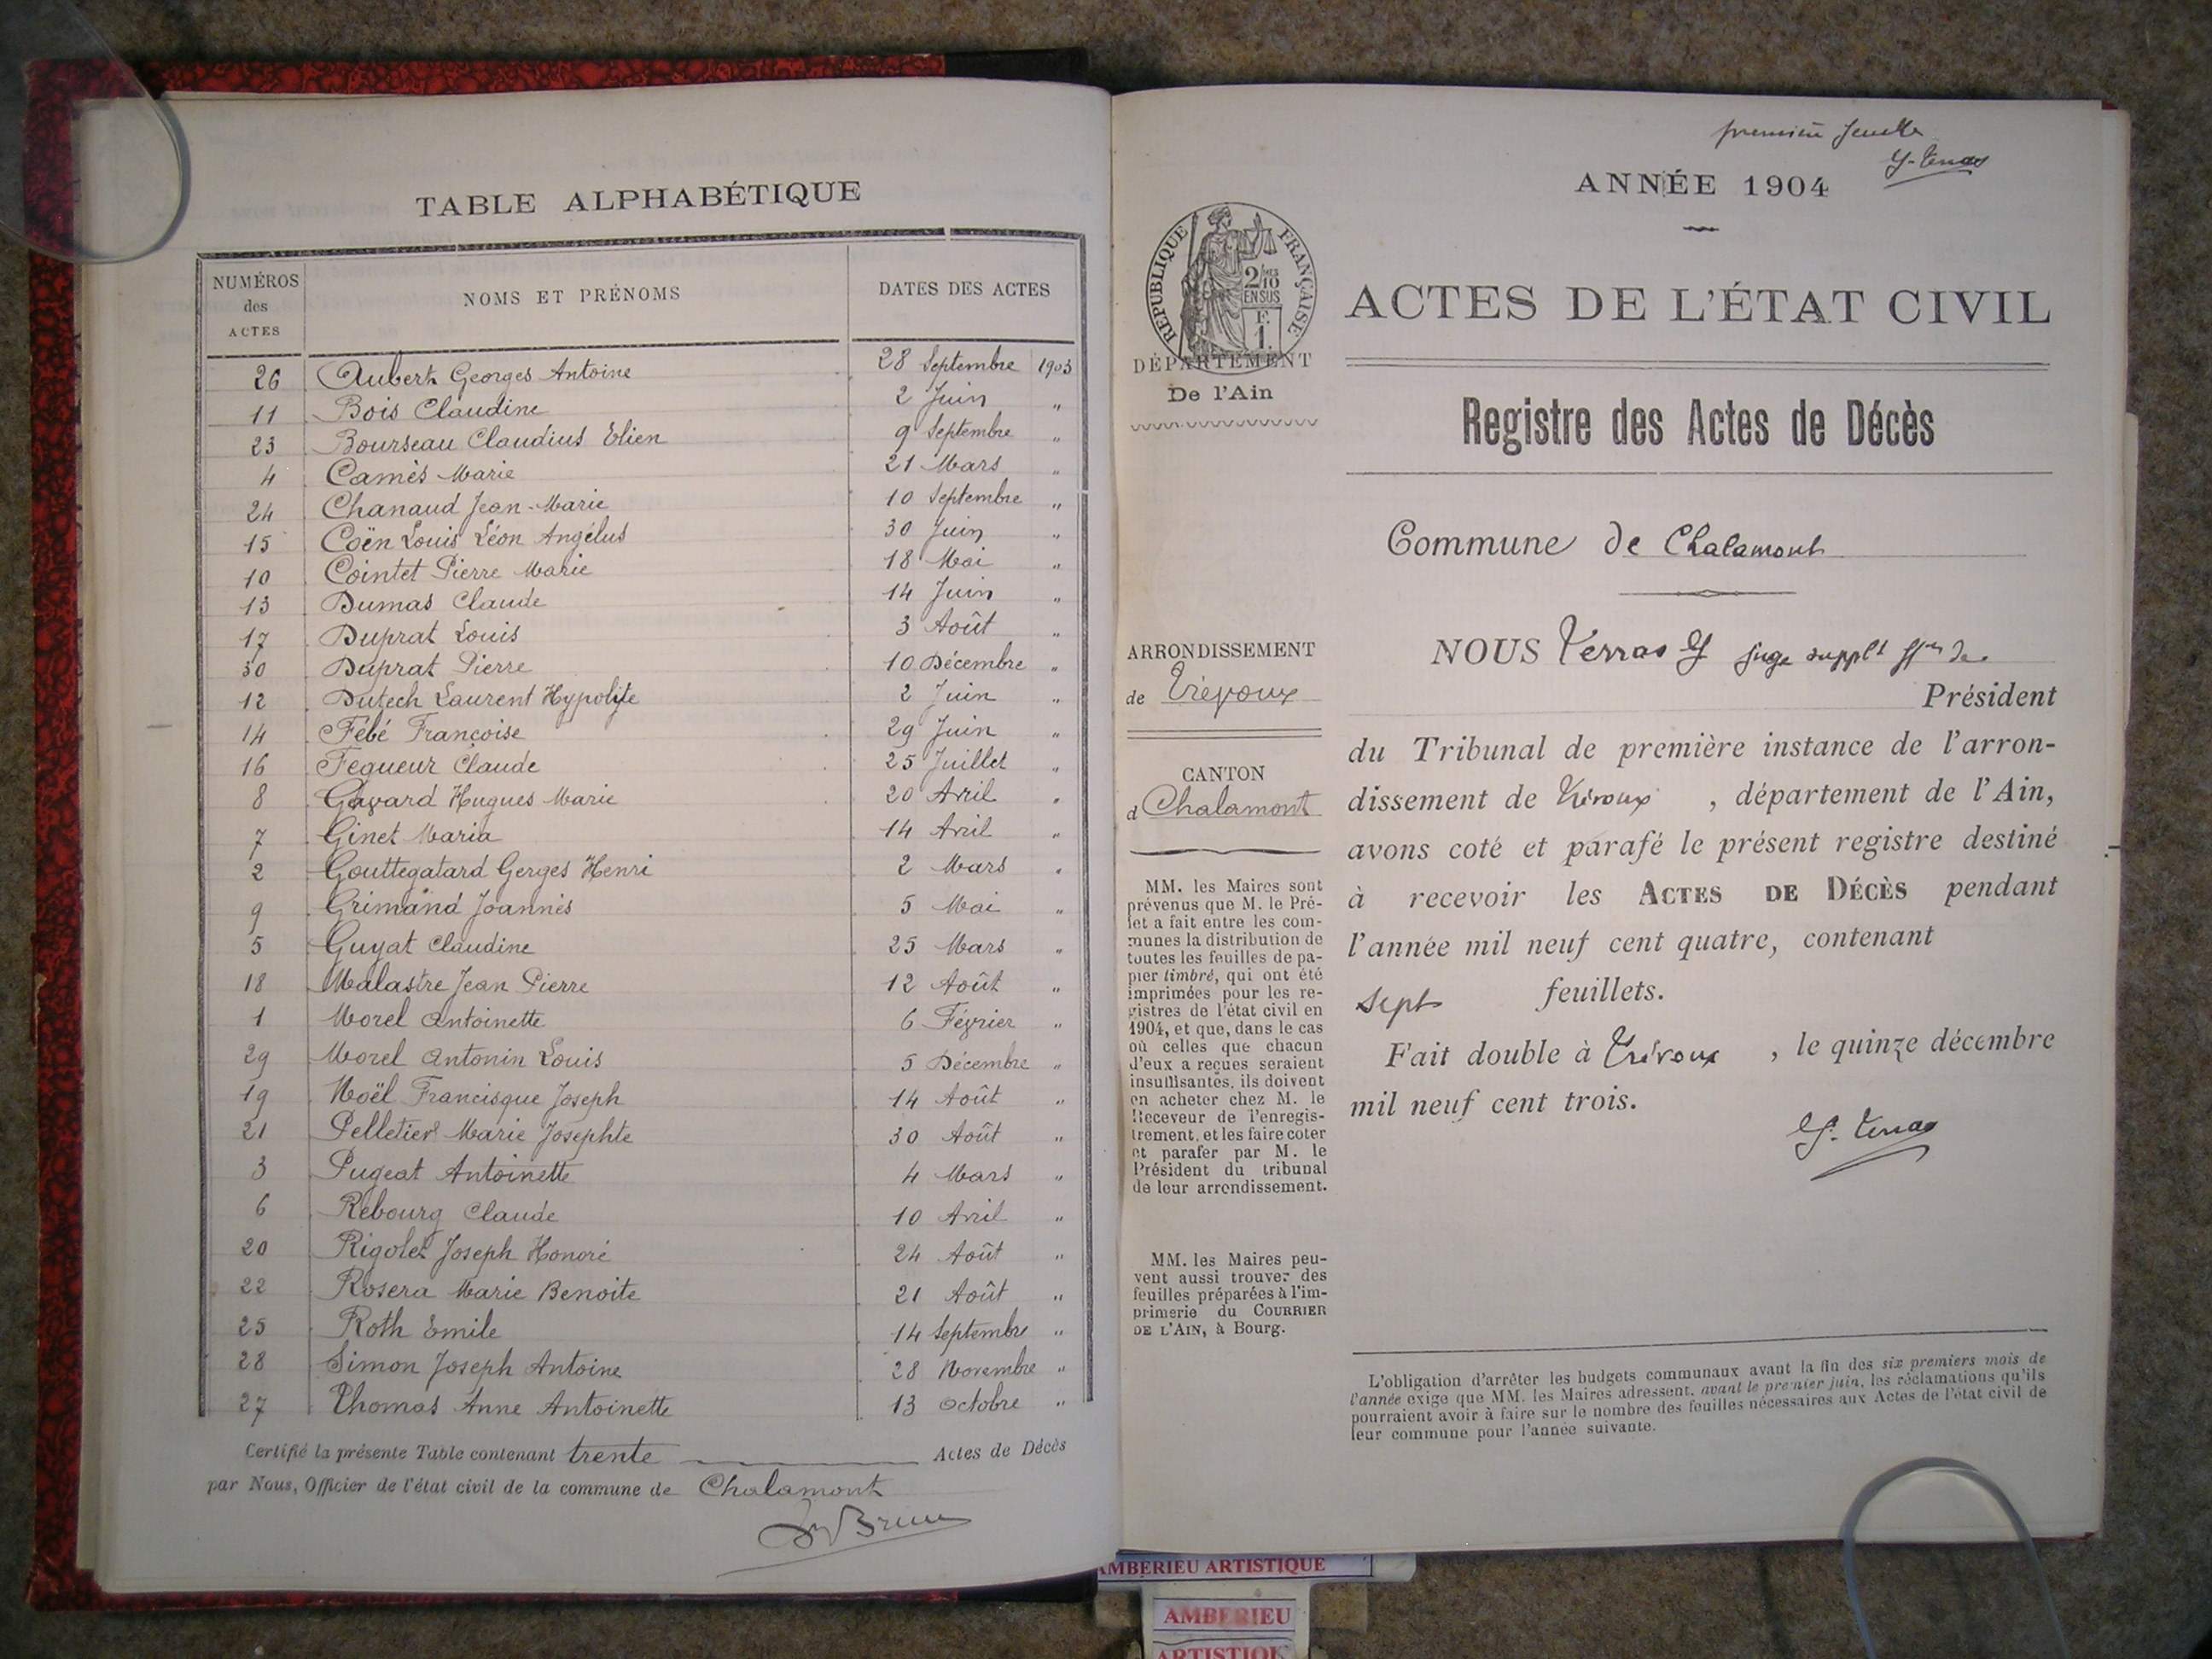 TABLE ALPHABÉTIQUE
NUMÉROS des ACTES
NOMS ET PRÉNOMS
DATES DES ACTES
26 Aubert Georges Antoine 28 Septembre 1903
11 Bois Claudine 2 Juin "
23 Bourseau Claudius Elien 9 Septembre "
4 Camès Marie 21 Mars "
24 Chanaud Jean-Marie 10 Septembre "
15 Coën Louis Léon Angélus 30 Juin "
10 Cointet Pierre Marie 18 Mai "
13 Dumas Claude 14 Juin "
17 Duprat Louis 3 Août "
30 Duprat Pierre 10 Décembre "
12 Dutech Laurent Hypolyte 2 Juin "
14 Fébé Françoise 29 Juin "
16 Fequeur Claude 25 Juillet "
8 Gavard Hugues Marie 20 Avril "
7 Ginet Maria 14 Avril "
2 Gouttegatard Gerges Henri 2 Mars "
9 Grimand Joannès 5 Mai "
5 Guyat Claudine 25 Mars "
18 Malastre Jean Pierre 12 Août "
1 Morel Antoinette 6 Février "
29 Morel Antonin Louis 5 Décembre "
19 Noël Francisque Joseph 14 Août "
21 Pelletier Marie Josephte 30 Août "
3 Pugeat Antoinette 4 Mars "
6 Rebourg Claude 10 Avril "
20 Rigolet Joseph Honoré 24 Août "
22 Rosera Marie Benoite 21 Août "
25 Roth Emile 14 Septembre "
28 Simon Joseph Antoine 28 Novembre "
27 Thomas Anne Antoinette 13 Octobre "
Certifié la présente Table contenant trente Actes de Décès
par Nous, Officier de l'état civil de la commune de Chalamont
Brun
première feuille
ANNÉE 1904
RÉPUBLIQUE FRANÇAISE
2/10MES
EN SUS
F.
1.
DÉPARTEMENT
De l'Ain
ARRONDISSEMENT
de Trévoux
CANTON
d Chalamont
MM. les Maires sont
prévenus que M. le Pré-
fet a fait entre les com-
munes la distribution de
toutes les feuilles de pa-
pier timbré, qui ont été
imprimées pour les re-
gistres de l'état civil en
1904, et que, dans le cas
où celles que chacun
d'eux a reçues seraient
insuffisantes, ils doivent
en acheter chez M. le
Receveur de l'enregis-
trement, et les faire coter
et parafer par M. le
Président du tribunal
de leur arrondissement.
MM. les Maires peu-
vent aussi trouver des
feuilles préparées à l'im-
primerie du COURRIER
DE L'AIN, à Bourg.
ACTES DE L'ÉTAT CIVIL
Registre des Actes de Décès
Commune de Chalamont
NOUS Terras juge suppl^t ff^ons de
Président
du Tribunal de première instance de l'arron-
dissement de Trévoux , département de l'Ain,
avons coté et parafé le présent registre destiné
à recevoir les ACTES DE DÉCÈS pendant
l'année mil neuf cent quatre, contenant
sept feuillets.
Fait double à Trévoux , le quinze décembre
mil neuf cent trois.
Terras
L'obligation d'arrêter les budgets communaux avant la fin des six premiers mois de
l'année exige que MM. les Maires adressent, avant le premier juin, les réclamations qu'ils
pourraient avoir à faire sur le nombre des feuilles nécessaires aux Actes de l'état civil de
leur commune pour l'année suivante.
AMBERIEU ARTISTIQUE
AMBERIEU
ARTISTIQ